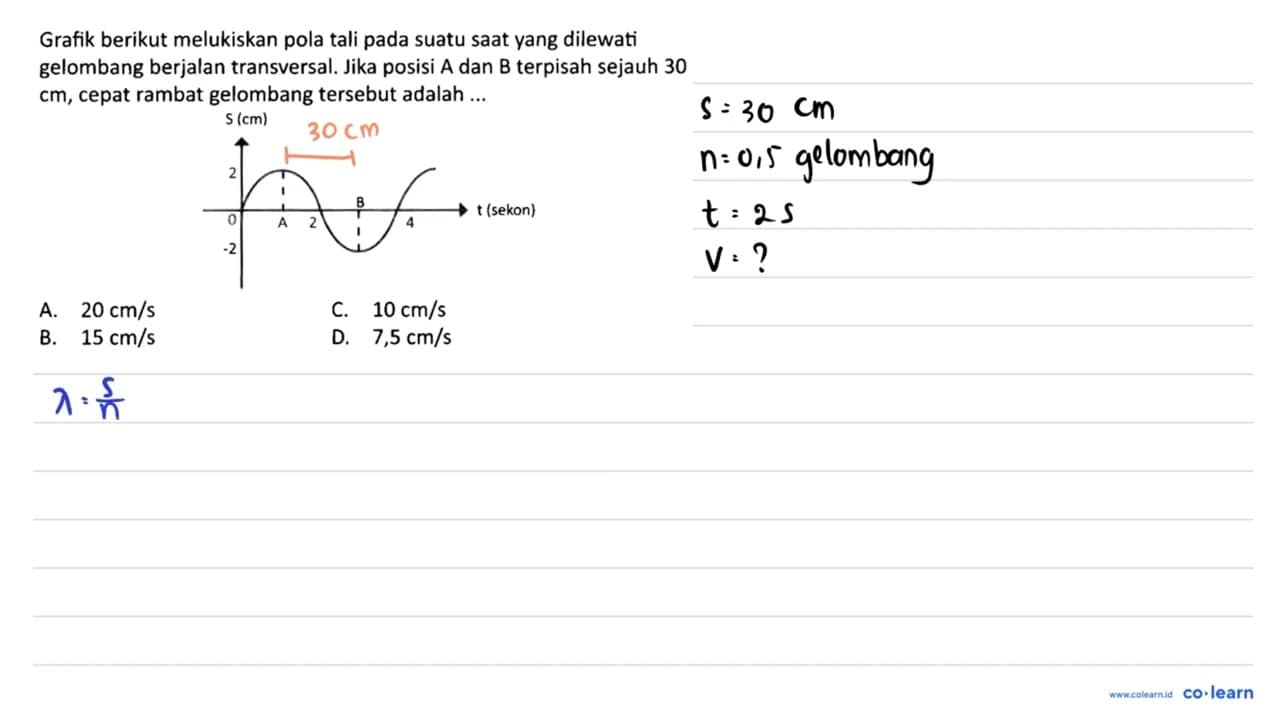 Grafik berikut melukiskan pola tali pada suatu saat yang dilewati
gelombang berjalan transversal. Jika posisi A dan B terpisah sejauh 30
cm, cepat rambat gelombang tersebut adalah ...
S (cm)
30 cm
2
B
t (sekon)
0
A
2
4
-2
A. 20 cm/s
C. 10 cm/s
B. 15 cm/s
D. 7,5 cm/s
s = 30 cm
n = 0,5 gelombang
t = 2 s
v = ?
λ = s/n
www.colearn.id co·learn